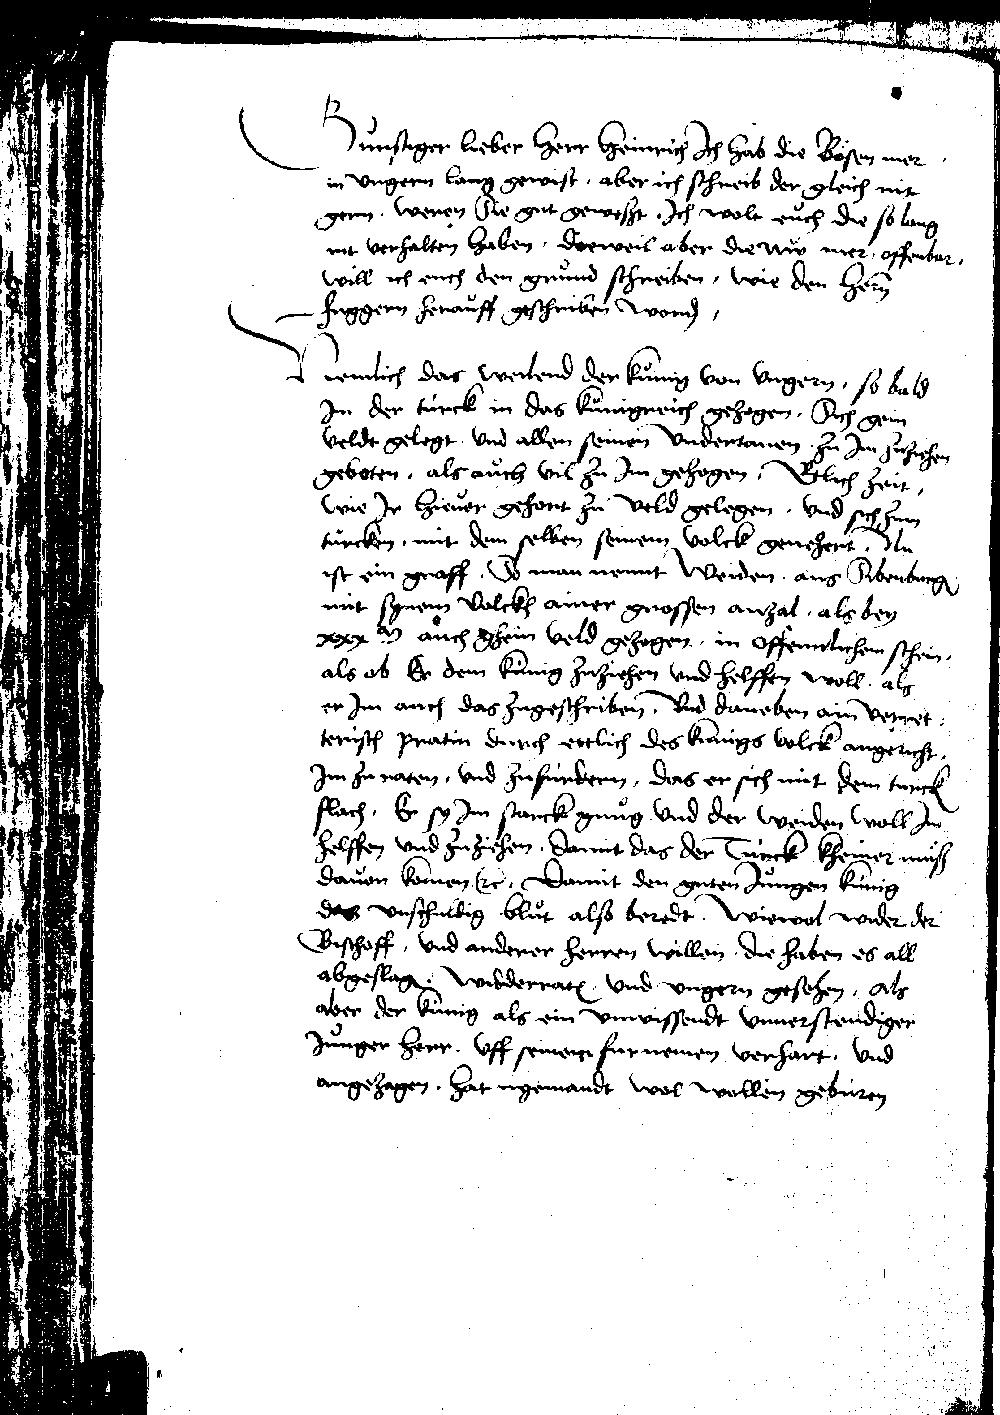 Gunstiger lieber herr heinrich Ich hab die Bösen mer
in ungern lang gewist . aber ich schreib der gleich nit
gern . weren Sie gut geweszt . Ich wolt euch die so lang
nit verhalten haben . dieweil aber die nw mer offenbar ,
will ich euch den grund schreiben , wie den hern
fuggern herauff geschriben word ,
Nemlich das weilend der kunig von ungern , so bald
Im der turck in das kunigreich gezogen , Sich gein
veldt gelegt und allen seinen undertanen zu Im zuziehen
geboten , als auch vil zu Im gezogen , Etlich zeit ,
wie Ir hievor gehort zu veld gelegen , und sich zum
turcken , mit dem selben seinem volck genehert . Nu
ist ein graff . So man nennt Weiden . aus Sibenburg
mit synem Volckh ainer grossen anzal . als bey
xxx M auch gein veld gezogen , in offenntlichem schein ,
als ob Er dem kunig zuziehen und helffen woll . als
er Im auch das zugeschriben , Und daneben ain verret
terisch pratin durch ettlich des kunigs volck angericht ,
Im zu raten , und zufurdern , das er sich mit dem turck
slach , Er sy Im starck gnug und der weiden woll Im
helffen und zuziehen , damit das der Turck kheiner muß
davon komen etc , Damit den guten Jungen kunig
das unschuldig blut also beredt . Wiewol wider der
Bischoff , und anderer herren willen . die haben es all
abgeslag , widderrat , und ungern gesehen , als
aber der kunig als ein unwissendt unverstendiger
Junger herr . uff seinem furnemen verhart , und
angezogen , hat nyemandt wol wollen geburen